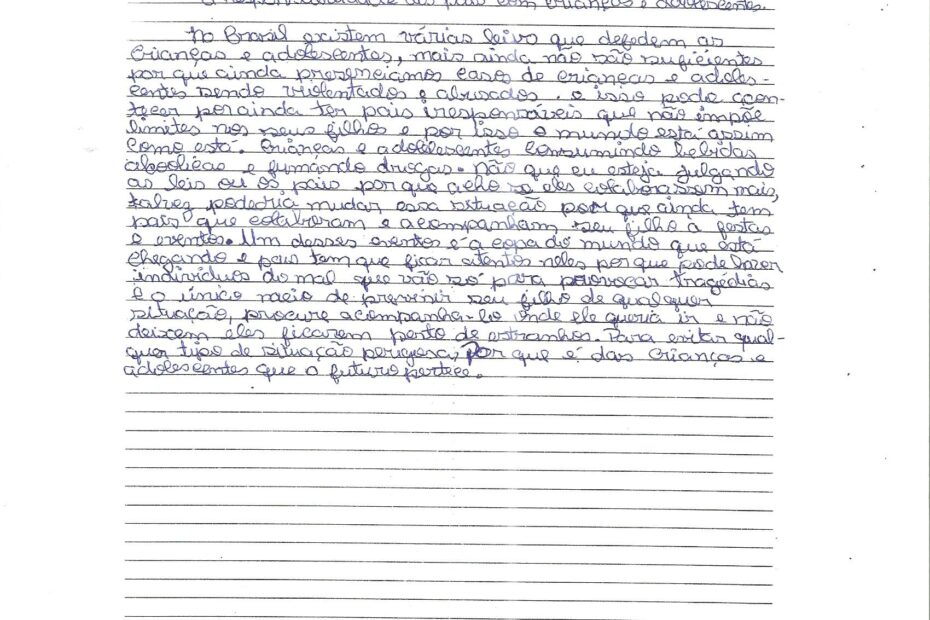 A responsabilidade dos pais com crianças e adolescentes.
No Brasil existem várias leivo que defedem as
Crianças e adolescentes, mais ainda não são suficientes
por que ainda presenciamos casos de crianças e adoles-
centes sendo violentados e abusados. e isso pode acon-
tecer porainda ter pais irresponsáveis que não impõe
limites nos seus filhos e por isso o mundo está assim
como está. Crianças e adolescentes consumindo bebidas
alcoolicas e fumando drogas. Não que eu esteja julgando
as leis ou os pais por que acho se eles colaborassem mais,
talvez poderia mudar essa situação por que ainda tem
pais que colaboram e acompanham seu filho a festas
e eventos. Um desses eventos e a copa do mundo que está
chegando e pais tem que ficar atentos neles por que pode haver
individuos do mal que vão só para provocar tragédias
E o único meio de prevenir seu filho de qualquer
situação, procure acompanha-lo onde ele queria ir e não
deixem eles ficarem perto de estranhos. Para evitar qual-
quer tipo de situação perigosa, Por que é das crianças e
adolescentes que o futuro pertece.